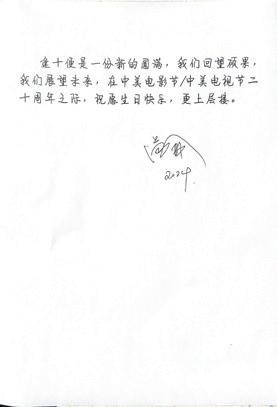 逢十便是一份新的圆满，我们回望硕果，
我们展望未来，在中美电影节/中美电视节二
十周年之际，祝愿生日快乐，更上层楼。
2024